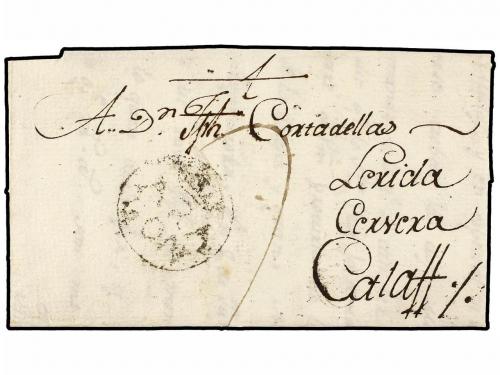 A. Dn. Jph. Cortadellas
Lerida
Cervera
Calaff